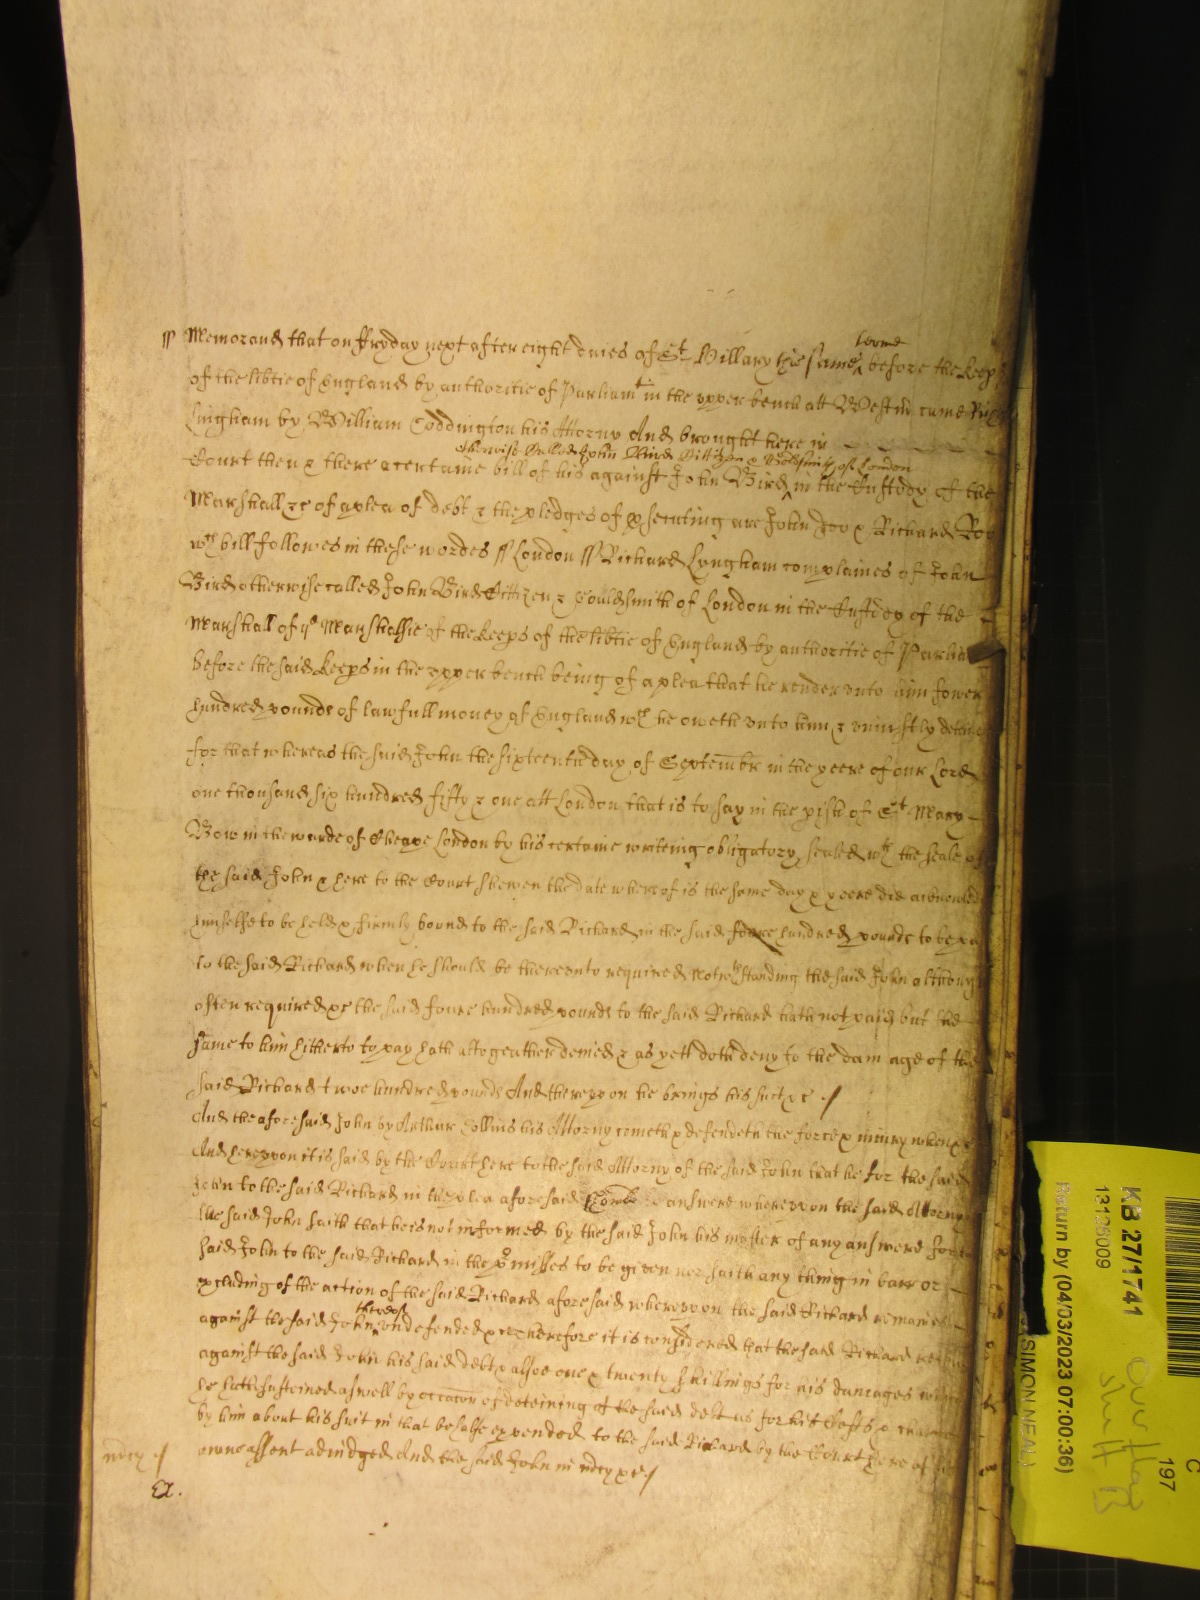 terme
ss Memorand that on ffryday next after eight daies of St Hillary this same before the Keeps
of the libtie of England by authoritie of Parliamt in the upper bench att Westm came Rich
Lingham by William Coddington his Attorny And brought here in
otherwise Called John Bird Cittizen & Goldsmith of London
Court then & there a certaine bill of his against John Bird in the Custody of the
Marshall &c of a plea of debt & the pledges of psecuting are John Doo & Richard Roo
wch bill followes in these wordes ss London ss Richard Lyngham complaines of John
Bird otherwise called John Bird Cittizen & Gouldsmith of London in the Custdey of the
Marshall of ye Marshalsie of the Keeps of the libtie of England by authoritie of Parliam
before the said Keeps in the upper bench being of a plea that he render unto him fower
hundred pounds of lawfull money of England wch he oweth unto him & uniustly detaines
for that whereas the said John the sixteenth day of Septembr in the yeere of our Lord
one thousand six hundred fifty & one att London that is to say in the pish of St Mary
Bow in the warde of Cheape London by his certaine writeing obligatory sealed wth the seale of
the said John & here to the Court shewen the date whereof is the same day & yeere did acknowled
himselfe to be held & firmly bound to the said Richard in the said foure hundred pounds to be pa
to the said Richard when he should be thereunto required Notwthstanding the said John although
often required &c the said foure hundred pounds to the said Richard hath not paid but the
same to him hitherto to pay hath altogeather denied & as yett doth deny to the damage of the
said Richard twoe hundred pounds And thereupon he brings his suct &c /
And the aforesaid John by Arthur Collins his Attorny cometh & defendeth the force & iniury when &c
And hereupon it is said by the Court here to the said Attorny of the said John that he for the said
John to the said Richard in the plea aforesaid answere whereupon the said Attorny
the said John saith that he is not informed by the said John his master of any answere for
said John to the said Richard in the pmisses to be given nor saith any thing in barr or
excluding of the action of the said Richard aforesaid whereupon the said Richard remaines
thereof
against the said John undefended &c Therefore it is considered that the said Richard
against the said John his said debt & alsoe one & twenty shillings for his damages
he hath susteined aswell by occacon of deteining of the said debt as for his Costs &
by him about his suit in that behalfe expended to the said Richard by the Court here of
mcy / owne assent adiudged And the said John in mcy &c /
Ex.
KB 27/1741
13125009
Return by (04/03/2023 07:00:36)
SIMON NEAL
C
197